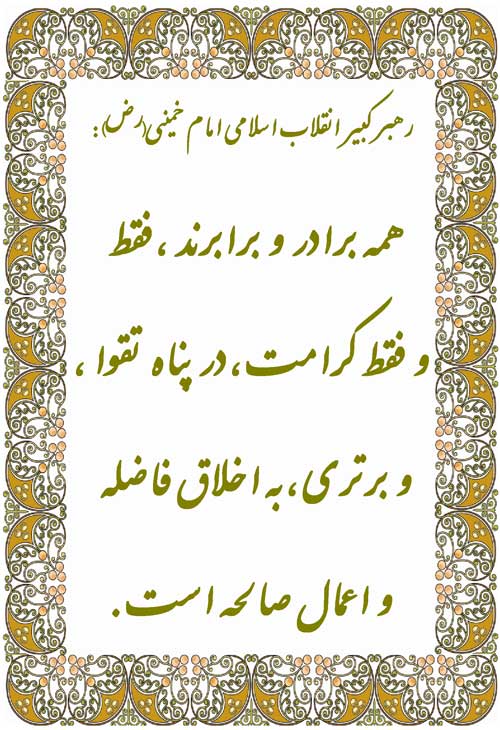 رهبر کبیر انقلاب اسلامی امام خمینی(رض):
همه برادر و برابرند ، فقط
و فقط کرامت، در پناه تقوا ،
و برتری، به اخلاق فاضله
و اعمال صالحه است.